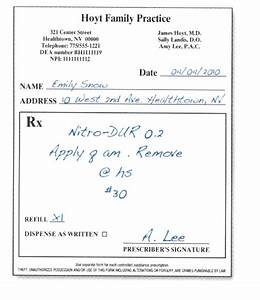 Hoyt Family Practice
321 Center Street
Healthtown, NV 00000
Telephone: 775/555-1221
DEA number BH1111119
NPI: 1111111112
James Hoyt, M.D.
Sally Landis, D.O.
Amy Lee, P.A.C.
Date 04/04/2010
NAME Emily Snow
ADDRESS 10 West 2nd Ave. Healthtown, NV
Rx
Nitro-DUR 0.2
Apply q am. Remove
@ hs
#30
REFILL X1
DISPENSE AS WRITTEN
A. Lee
PRESCRIBER'S SIGNATURE
Use separate form for each controlled substance prescription.
THEFT, UNAUTHORIZED POSSESSION AND/OR USE OF THIS FORM INCLUDING ALTERATIONS OR FORGERY, ARE CRIMES PUNISHABLE BY LAW